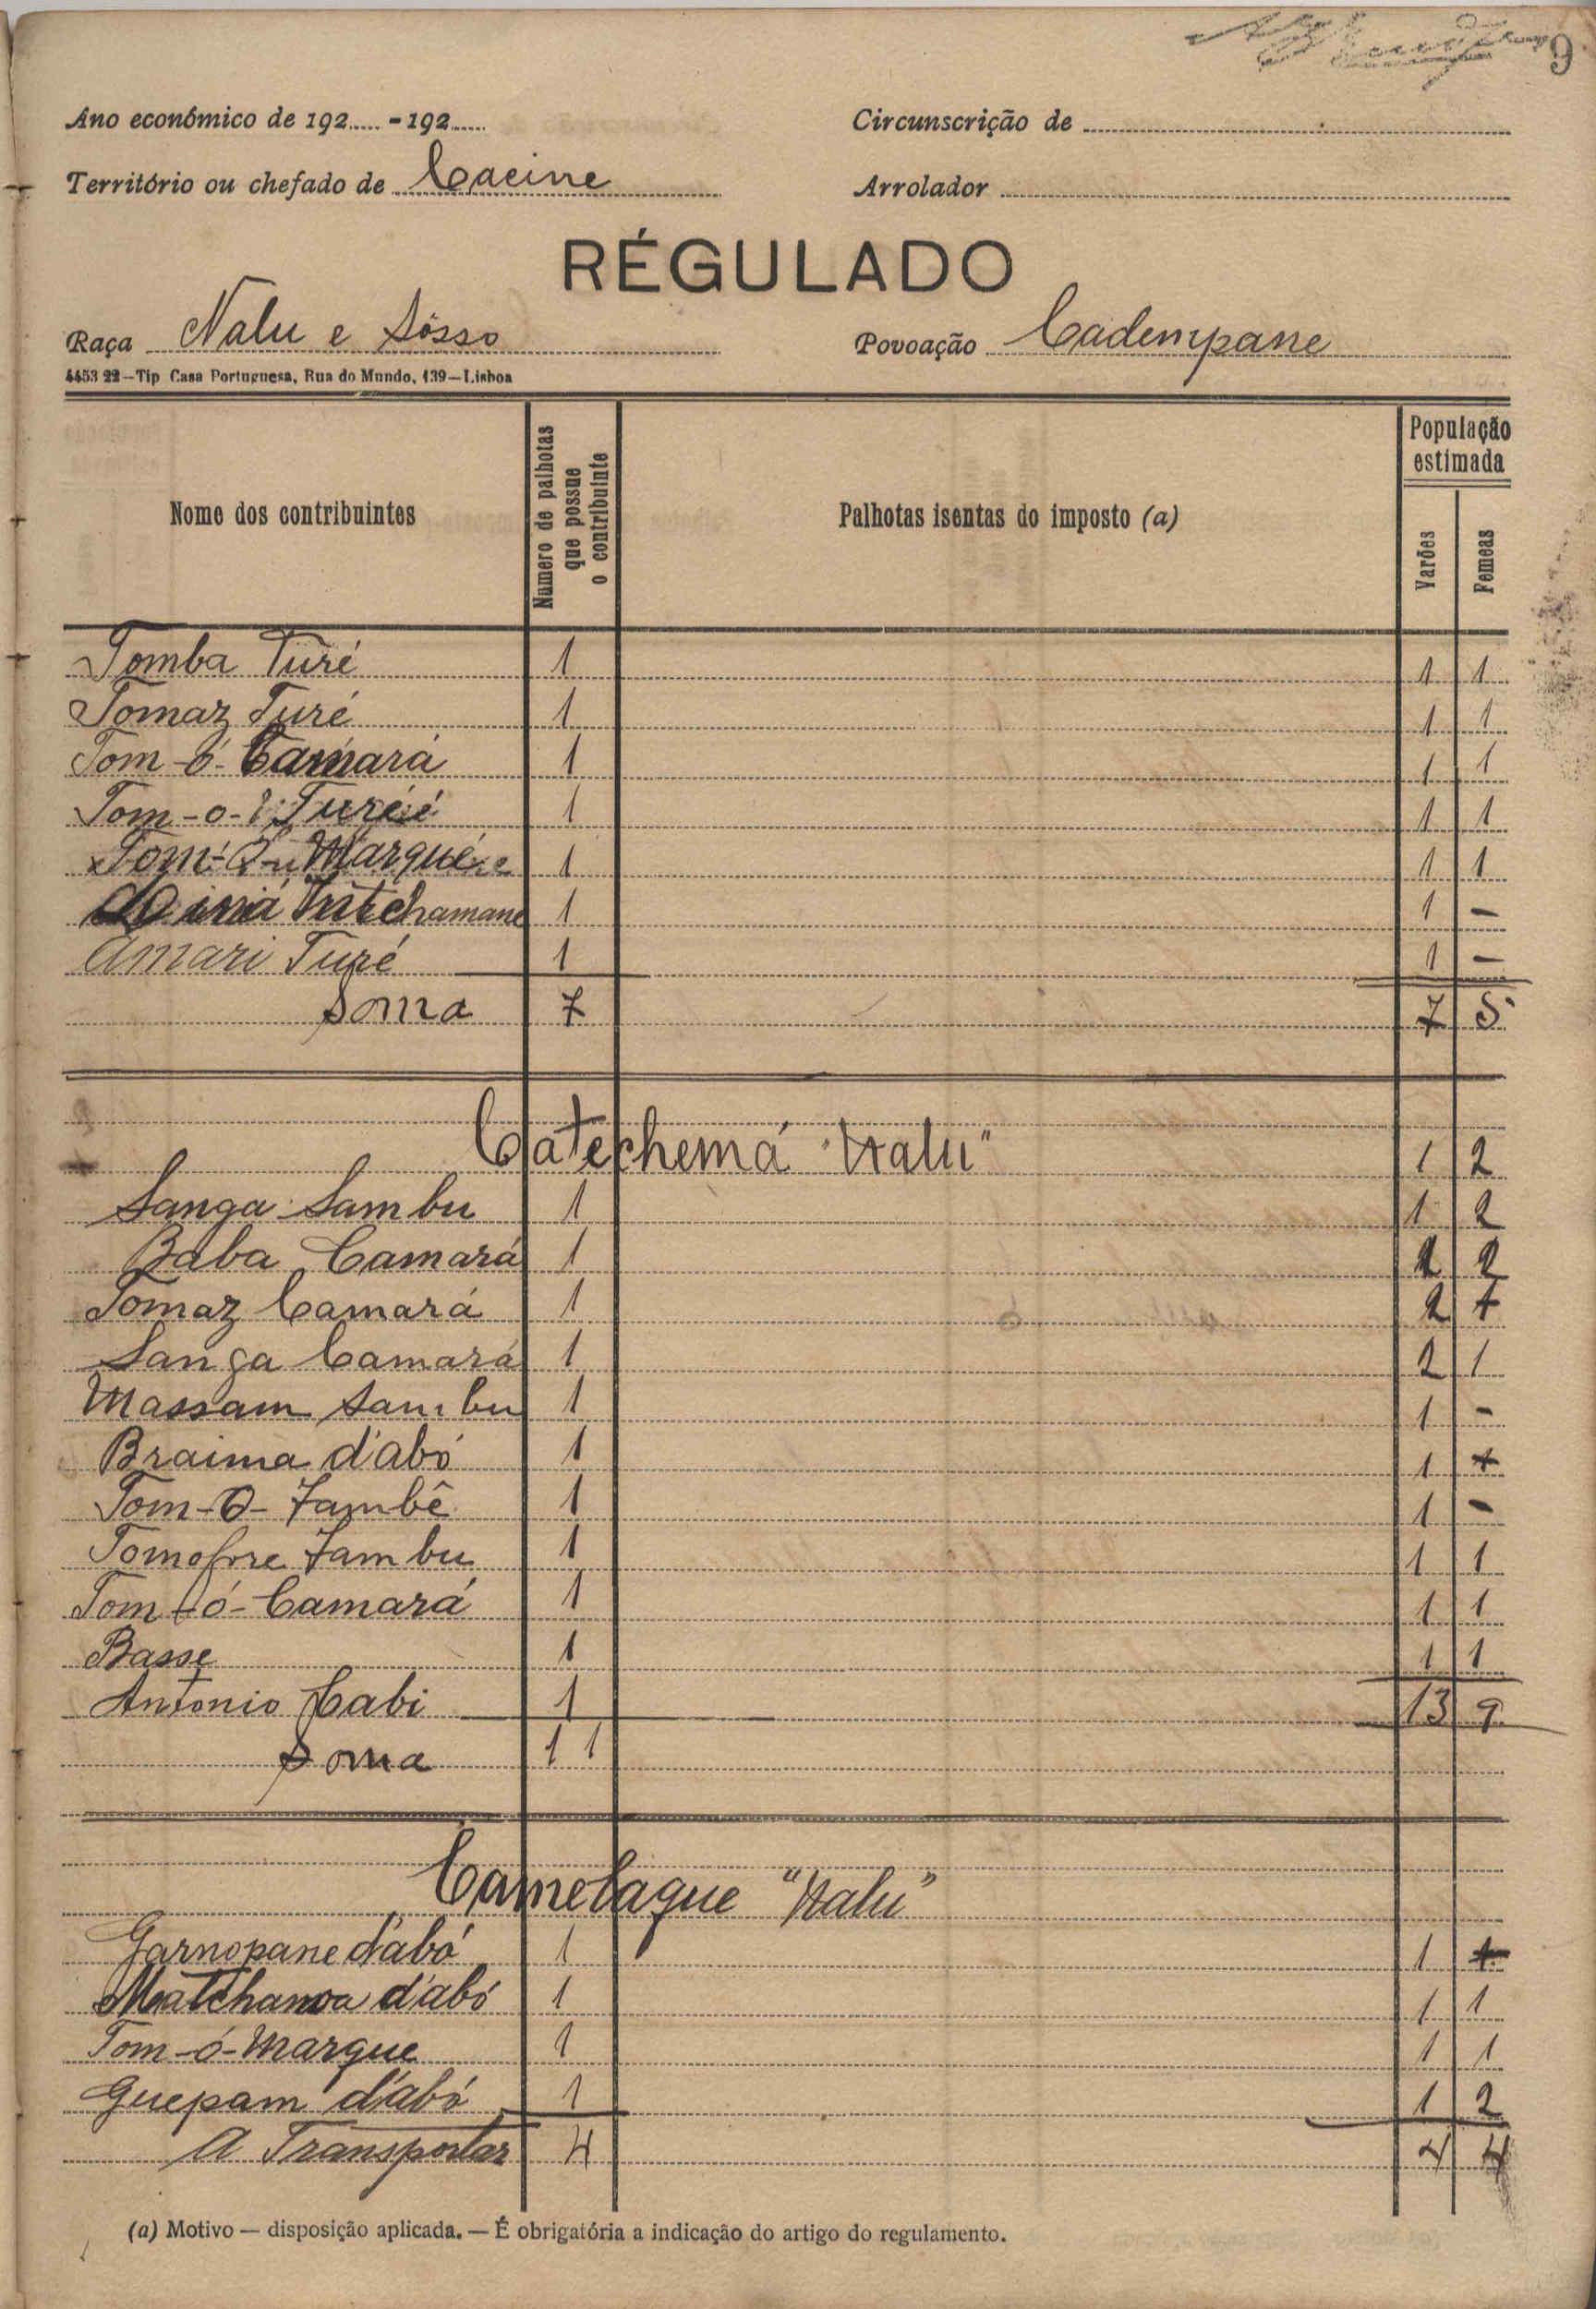 9
Ano económico de 192..... - 192......
Circunscrição de
Território ou chefado de Cacine
Arrolador
RÉGULADO
Raça Nalu e Sôsso
Povoação Cadempane
4453 22—Tip Casa Portuguesa, Rua do Mundo, 139—Lisboa
Nome dos contribuintes
Numero de palhotas que possue o contribuinte
Palhotas isentas do imposto (a)
População estimada
Varões
Femeas
Tomba Turé 1 1 1
Tomaz Turé 1 1 1
Tom-ó-Camará 1 1 1
Tom-o-Turé 1 1 1
Tom-O-Marque 1 1 1
1 1 -
Amari Turé 1 1 -
Soma 7 7 5
Catechemá "Nalu" 1 2
Sanga Sambu 1 1 2
Baba Camará 1 2 2
Tomaz Camará 1 2 +
Sanga Camará 1 2 1
Massam Sambu 1 1 -
Braima d'abó 1 1 +
Tom-O-Tambê 1 1 -
Tomofore Tambu 1 1 1
Tom-ó-Camará 1 1 1
Basse 1 1 1
Antonio Cabi 1 13 9
Soma 11
Camelaque "Nalu"
Garnopane d'abó 1 1 1
Matchanoa d'abó 1 1 1
Tom-ó-Marque 1 1 1
Guepam d'abó 1 1 2
A Transportar 4 4 4
(a) Motivo — disposição aplicada. — É obrigatória a indicação do artigo do regulamento.